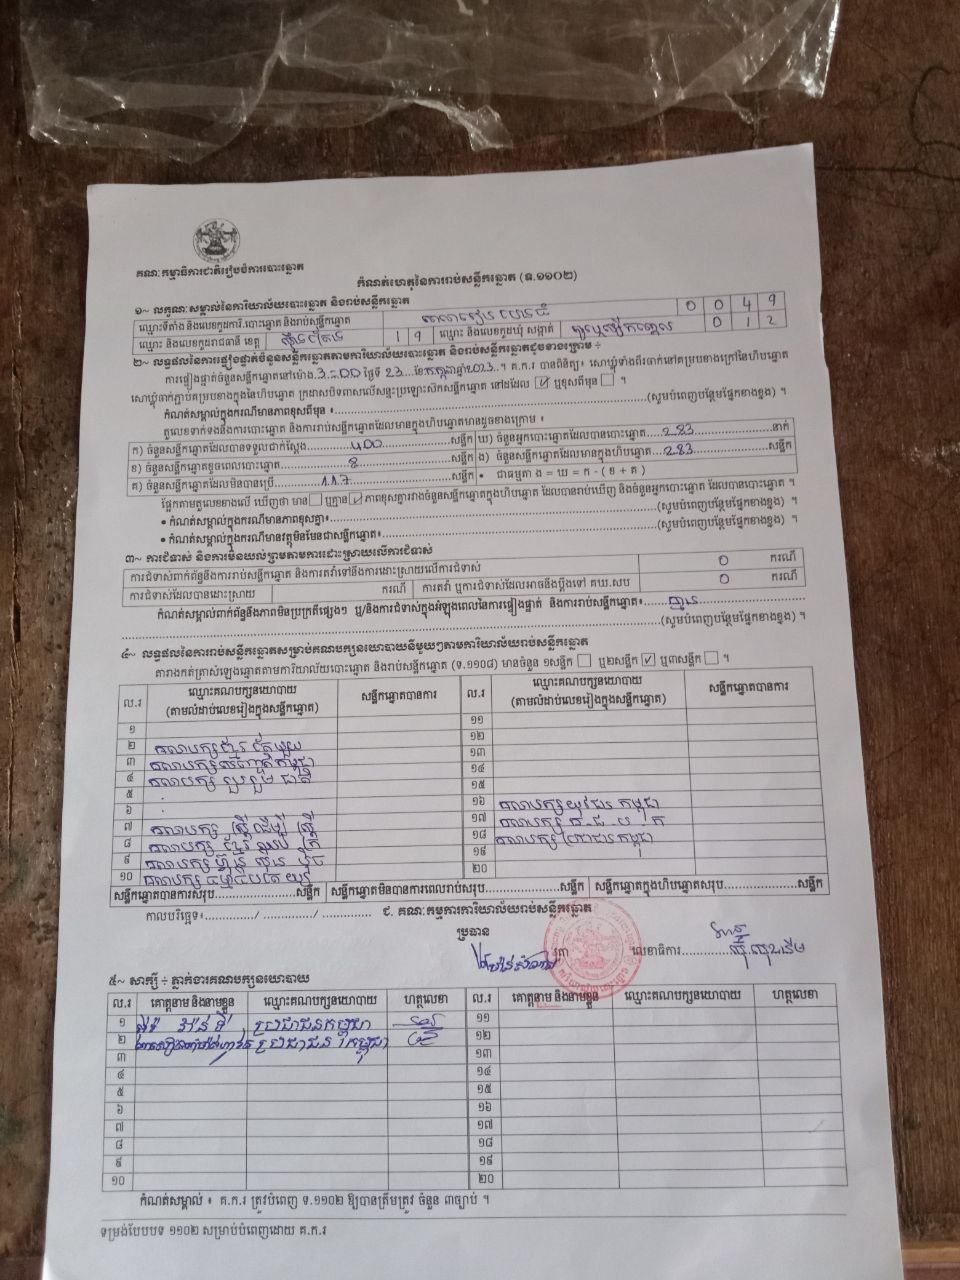 គណៈកម្មាធិការជាតិរៀបចំការបោះឆ្នោត
កំណត់ហេតុនៃការរាប់សន្លឹកឆ្នោត (ទ.១១០២)
១~ លក្ខណៈសម្គាល់នៃការិយាល័យបោះឆ្នោត និងរាប់សន្លឹកឆ្នោត
ឈ្មោះទីតាំង និងលេខកូដការិ.បោះឆ្នោត និងរាប់សន្លឹកឆ្នោត 0 0 4 9
ឈ្មោះ និងលេខកូដរាជធានី ខេត្ត 1 9 ឈ្មោះ និងលេខកូដឃុំ សង្កាត់ 0 1 2
២~ លទ្ធផលនៃការផ្ទៀងផ្ទាត់ចំនួនសន្លឹកឆ្នោតតាមការិយាល័យបោះឆ្នោត និងរាប់សន្លឹកឆ្នោតដូចខាងក្រោម ÷
ការផ្ទៀងផ្ទាត់ចំនួនសន្លឹកឆ្នោតនៅម៉ោង 3-00 ថ្ងៃទី 23 ខែកក្កដា ឆ្នាំ2023 ។ គ.ក.រ បានពិនិត្យ៖ សោឃ្លុំទាំងពីរចាក់នៅគម្របខាងក្រៅនៃហិបឆ្នោត
សោឃ្លុំចាក់ភ្ជាប់គម្របខាងក្នុងនៃហិបឆ្នោត ក្រដាសបិទពាសលើសន្ទះប្រឡោះសិកសន្លឹកឆ្នោត នៅដដែល ☑ ឬខុសពីមុន ☐ ។
កំណត់សម្គាល់ក្នុងករណីមានភាពខុសពីមុន ៖ (សូមបំពេញបន្ថែមផ្នែកខាងខ្នង) ។
តួលេខទាក់ទងនឹងការបោះឆ្នោត និងការរាប់សន្លឹកឆ្នោតដែលមានក្នុងហិបឆ្នោតមានដូចខាងក្រោម ៖
ក) ចំនួនសន្លឹកឆ្នោតដែលបានទទួលជាក់ស្តែង 400 សន្លឹក ឃ) ចំនួនអ្នកបោះឆ្នោតដែលបានបោះឆ្នោត 283 នាក់
ខ) ចំនួនសន្លឹកឆ្នោតខូចពេលបោះឆ្នោត 8 សន្លឹក ង) ចំនួនសន្លឹកឆ្នោតដែលមានក្នុងហិបឆ្នោត 283 សន្លឹក
គ) ចំនួនសន្លឹកឆ្នោតដែលមិនបានប្រើ 117 សន្លឹក • ជាធម្មតា ង = ឃ = ក - ( ខ + គ )
ផ្អែកតាមតួលេខខាងលើ ឃើញថា មាន ☐ ឬគ្មាន ☑ ភាពខុសគ្នារវាងចំនួនសន្លឹកឆ្នោតក្នុងហិបឆ្នោត ដែលបានរាប់ឃើញ និងចំនួនអ្នកបោះឆ្នោត ដែលបានបោះឆ្នោត ។
• កំណត់សម្គាល់ក្នុងករណីមានភាពខុសគ្នា៖ (សូមបំពេញបន្ថែមផ្នែកខាងខ្នង) ។
• កំណត់សម្គាល់ក្នុងករណីមានវត្ថុមិនមែនជាសន្លឹកឆ្នោត៖ (សូមបំពេញបន្ថែមផ្នែកខាងខ្នង) ។
៣~ ការជំទាស់ និងការមិនយល់ព្រមតាមការដោះស្រាយលើការជំទាស់
ការជំទាស់ពាក់ព័ន្ធនឹងការរាប់សន្លឹកឆ្នោត និងការតវ៉ាទៅនឹងការដោះស្រាយលើការជំទាស់ 0 ករណី
ការជំទាស់ដែលបានដោះស្រាយ ករណី ការតវ៉ា ឬការជំទាស់ដែលអាចនឹងប្តឹងទៅ គឃ.សប 0 ករណី
កំណត់សម្គាល់ពាក់ព័ន្ធនឹងភាពមិនប្រក្រតីផ្សេងៗ ឬ/និងការជំទាស់ក្នុងអំឡុងពេលនៃការផ្ទៀងផ្ទាត់ និងការរាប់សន្លឹកឆ្នោត៖ គ្មាន
(សូមបំពេញបន្ថែមផ្នែកខាងខ្នង) ។
៤~ លទ្ធផលនៃការរាប់សន្លឹកឆ្នោតសម្រាប់គណបក្សនយោបាយនីមួយៗតាមការិយាល័យរាប់សន្លឹកឆ្នោត
តារាងកត់ត្រាសំឡេងឆ្នោតតាមការិយាល័យបោះឆ្នោត និងរាប់សន្លឹកឆ្នោត (ទ.១១០៨) មានចំនួន ១សន្លឹក ☐ ឬ២សន្លឹក ☑ ឬ៣សន្លឹក ☐ ។
ល.រ ឈ្មោះគណបក្សនយោបាយ (តាមលំដាប់លេខរៀងក្នុងសន្លឹកឆ្នោត) សន្លឹកឆ្នោតបានការ ល.រ ឈ្មោះគណបក្សនយោបាយ (តាមលំដាប់លេខរៀងក្នុងសន្លឹកឆ្នោត) សន្លឹកឆ្នោតបានការ
១ ១១
២ គណបក្សខ្មែរ តែមួយ ១២
៣ គណបក្ស កម្ពុជា ១៣
៤ គណបក្ស រួបរួម ជាតិ ១៤
៥ ១៥
៦ ១៦ គណបក្សយុវជន កម្ពុជា
៧ គណបក្ស ស្ត្រី ដើម្បី ស្ត្រី ១៧ គណបក្ស
៨ គណបក្ស ខ្មែរ ១៨ គណបក្សប្រជាជនកម្ពុជា
៩ គណបក្ស ហ៊្វុនស៊ិនប៉ិច ១៩
១០ គណបក្ស ២០
សន្លឹកឆ្នោតបានការសរុប សន្លឹក សន្លឹកឆ្នោតមិនបានការពេលរាប់សរុប សន្លឹក សន្លឹកឆ្នោតក្នុងហិបឆ្នោតសរុប សន្លឹក
កាលបរិច្ឆេទ៖ ............/ ............../ ............. ជ. គណៈកម្មការការិយាល័យរាប់សន្លឹកឆ្នោត
ប្រធាន
លេខាធិការ
៥~ សាក្សី ÷ ភ្នាក់ងារគណបក្សនយោបាយ
ល.រ គោត្តនាម និងនាមខ្លួន ឈ្មោះគណបក្សនយោបាយ ហត្ថលេខា ល.រ គោត្តនាម និងនាមខ្លួន ឈ្មោះគណបក្សនយោបាយ ហត្ថលេខា
១ ប្រជាជនកម្ពុជា ១១
២ ប្រជាជន កម្ពុជា ១២
៣ ១៣
៤ ១៤
៥ ១៥
៦ ១៦
៧ ១៧
៨ ១៨
៩ ១៩
១០ ២០
កំណត់សម្គាល់ ៖ គ.ក.រ ត្រូវបំពេញ ទ.១១០២ ឱ្យបានត្រឹមត្រូវ ចំនួន ៣ច្បាប់ ។
ទម្រង់បែបបទ ១១០២ សម្រាប់បំពេញដោយ គ.ក.រ